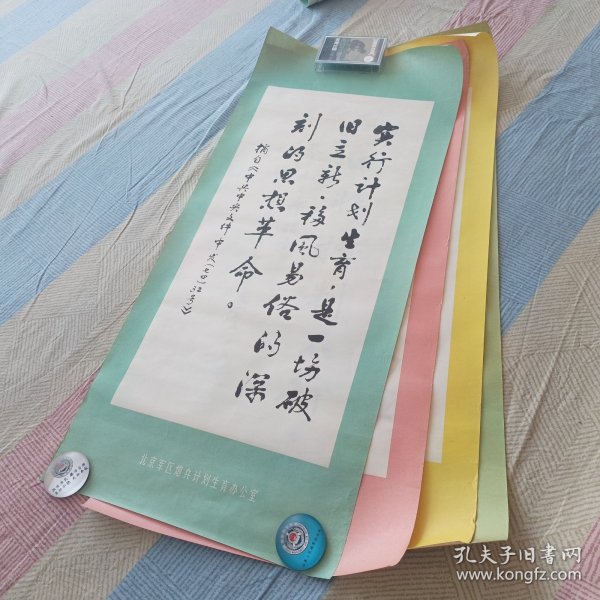 实行计划生育，是一场破
旧立新、移风易俗的深
刻的思想革命。
摘自《中共中央文件中发（七四）32号》
北京军区炮兵计划生育办公室
孔夫子旧书网
www.kongfz.com